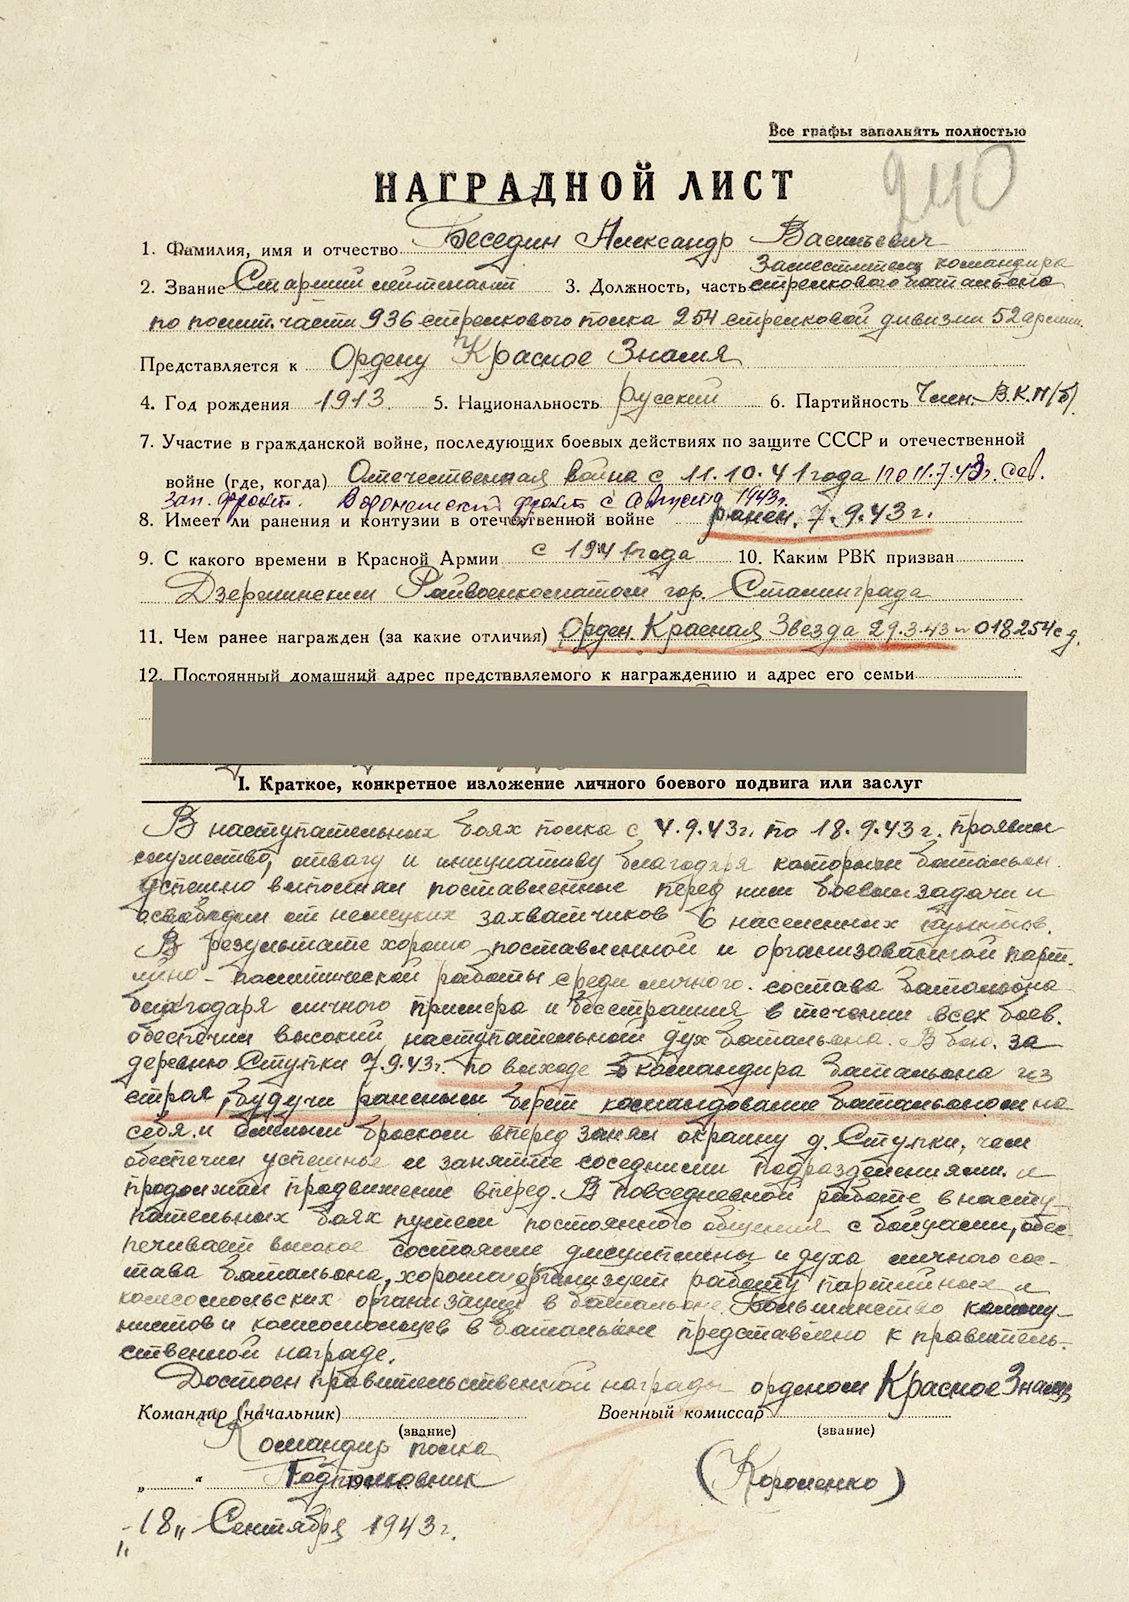 Все графы заполнять полностью
240
НАГРАДНОЙ ЛИСТ
1. Фамилия, имя и отчество Беседин Александр Васильевич
Заместитель командира
2. Звание Старший лейтенант 3. Должность, часть стрелкового батальона
по полит. части 936 стрелкового полка 254 стрелковой дивизии 52 армии.
Представляется к Ордену Красное Знамя
4. Год рождения 1913. 5. Национальность русский 6. Партийность Член В.К.П/б)
7. Участие в гражданской войне, последующих боевых действиях по защите СССР и отечественной
войне (где, когда) Отечественная война с 11.10.41 года по 11.7.43г. Сев.
зап. фронт. Воронежский фронт с августа 1943г.
8. Имеет ли ранения и контузии в отечественной войне ранен. 7.9.43г.
9. С какого времени в Красной Армии с 1941 года 10. Каким РВК призван
Дзержинским Райвоенкоматом гор. Сталинграда
11. Чем ранее награжден (за какие отличия) Орден Красная Звезда 29.3.43 018 254 с д.
12. Постоянный домашний адрес представляемого к награждению и адрес его семьи
I. Краткое, конкретное изложение личного боевого подвига или заслуг
В наступательных боях полка с 4.9.43г. по 18.9.43г. проявил
мужество, отвагу и инициативу благодаря которым батальон
успешно выполнял поставленные перед ним боевые задачи и
освободил от немецких захватчиков 6 населенных пунктов.
В результате хорошо поставленной и организованной парт.
ийно-политической работы среди личного состава батальона
благодаря личного примера и бесстрашия в течении всех боев.
обеспечил высокий наступательный дух батальона. В бою за
деревню Ступки 7.9.43г. по выходе командира батальона из
строя, будучи раненым берет командование батальоном на
себя и смелым броском вперед занял окраину д. Ступки, чем
обеспечил успешные и занятие соседними подразделениями и
продолжал продвижение вперед. В повседневной работе в насту
пательных боях путем постоянного общения с бойцами, обес-
печивает высокое состояние дисциплины и духа личного сос-
тава батальона, хорошо организует работу партийных и
комсомольских организаций в батальоне. Большинство комму-
нистов и комсомольцев в батальоне представлено к правитель-
ственной награде.
Достоен правительственной награды орденом Красное Знамя
Командир (начальник) Военный комиссар
(звание) (звание)
Командир полка
„ “ 194 Подполковник (Короленко)
„18„ Сентября 1943г.